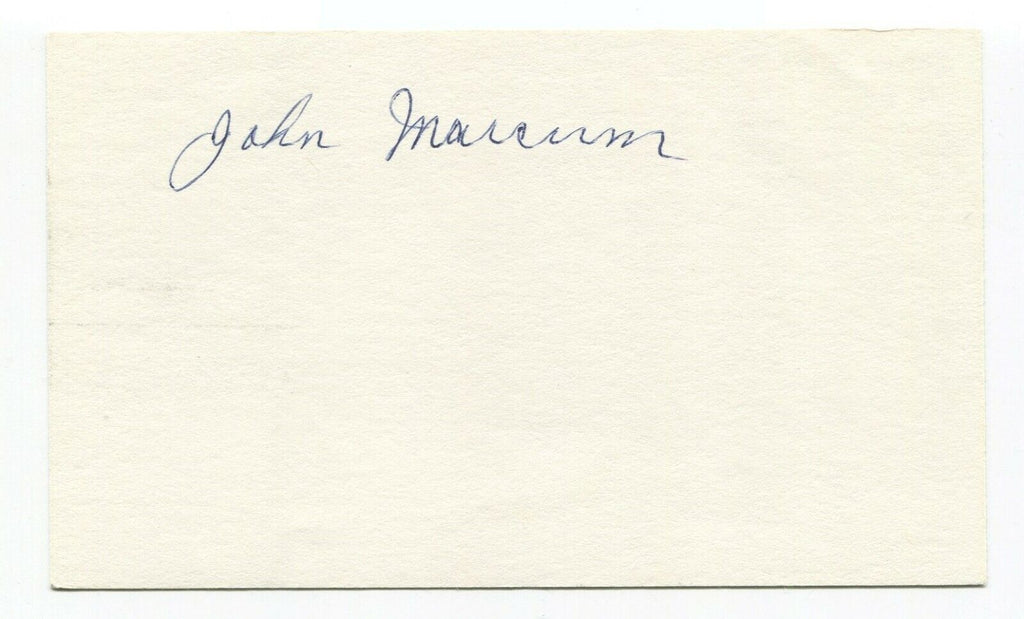 John Marcum